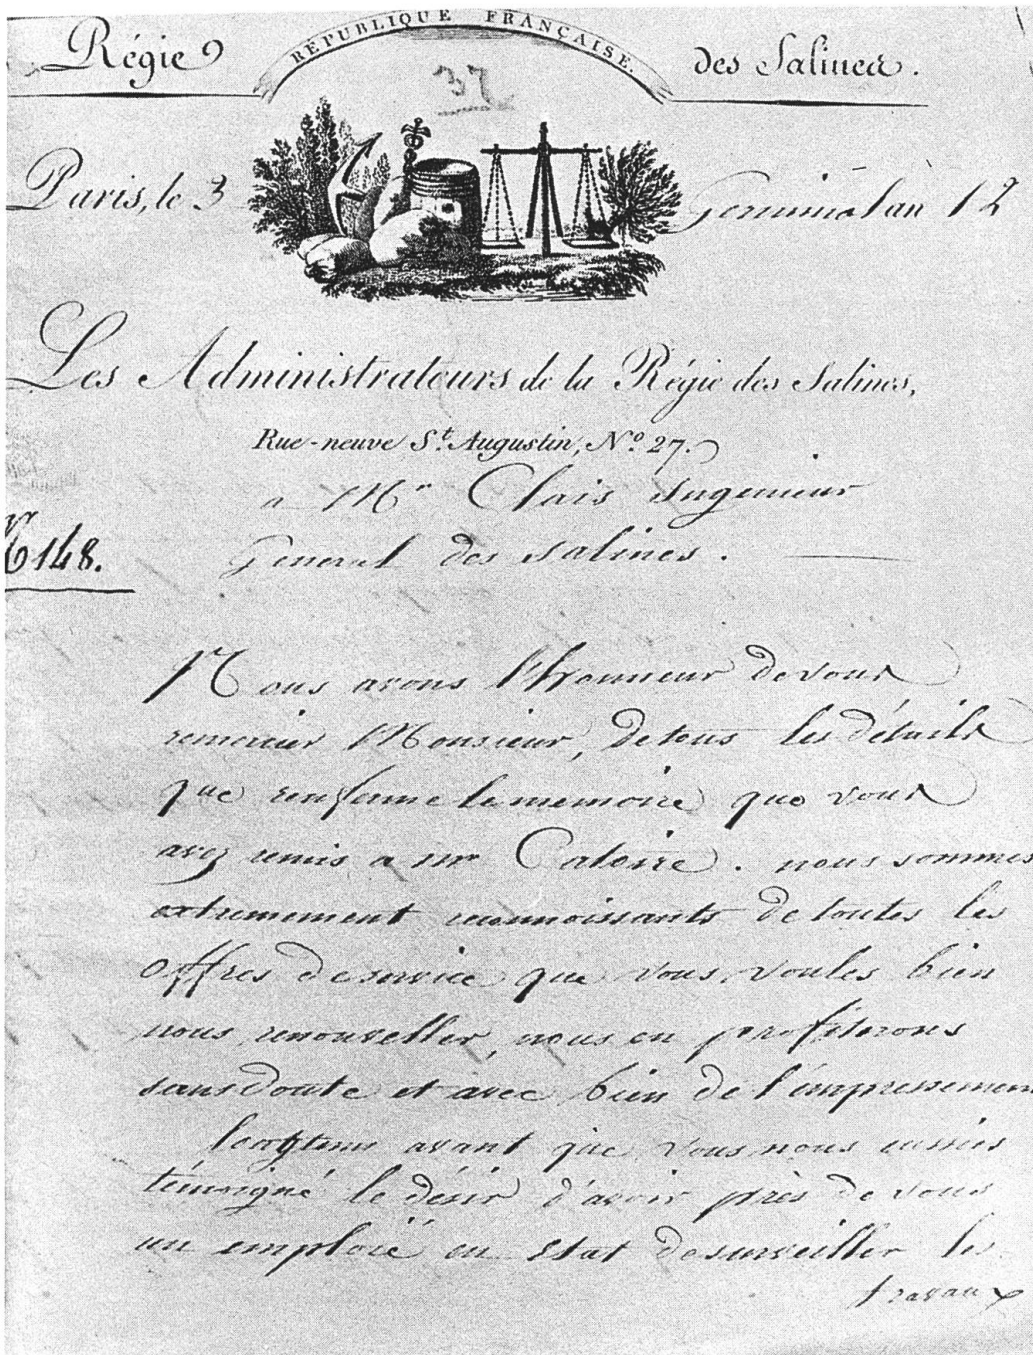 RÉPUBLIQUE FRANÇAISE.
Régie des Salines.
37
Paris, le 3 Germinal an 12
Les Administrateurs de la Régie des Salines,
Rue-neuve St. Augustin, No. 27.
a Mr Clais Ingenieur
General des Salines.
148.
Nous avons l'honneur de vous
remercier Monsieur, de tous les détails
que renferme le memoire que vous
avez remis a mr Catoire. nous sommes
extremement reconnoissants de toutes les
offres de service que vous voules bien
nous renouveller, nous en profiterons
sans doute et avec bien de l'empressement
longtems avant que vous nous eussies
témoigné le désir d'avoir près de vous
un emploié en Etat de surveiller les
travaux